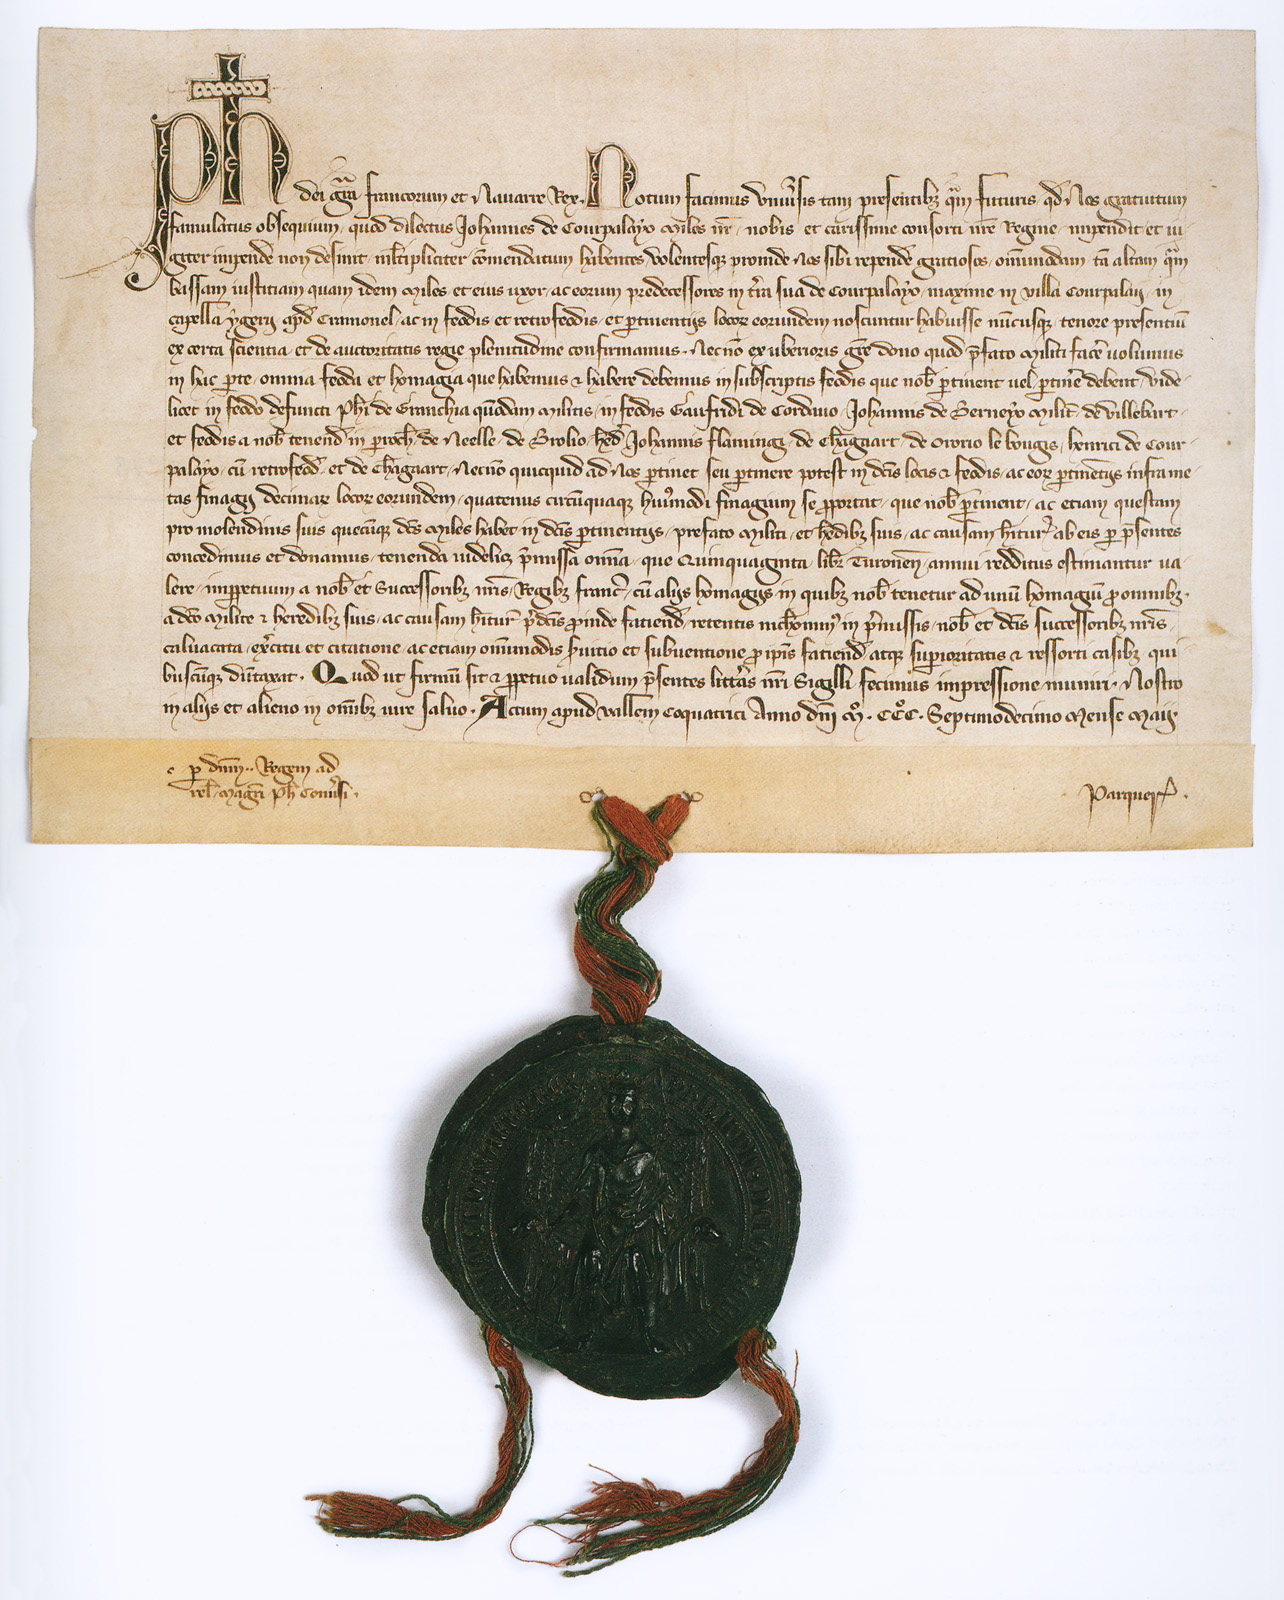 Ph dei gra francorum et Nauarre Rex. Notum facimus Vniusis tam presentibz qm futuris, qd Nos gratuitum
famulatus obsequium, quod dilectus Johannes de Courpalayo Miles nr, nobis et carissime consorti nre Regine, impendit et iu-
giter impende non desinit, mltipliciter comendatum habentes, volentesqz proinde Nos sibi repende gratiosos, omimodam tam altam qm
bassam iusticiam quam idem Miles et eius uxor, ac eorum predecessores in tra sua de Courpalayo, maxime in villa Courpalay, in
capella ygerij apd Cramonel, ac in feodis et retrofeodis, et ptinentijs locor eorundem noscuntur habuisse nuncusqz, tenore presentium
ex certa scientia et de auctoritatis regie plenitudine confirmamus. Necno ex uberioris gre dono quod pfato Militi face uolumus
in hac pte, omnia feoda et homagia que habemus & habere debemus in subscriptis feodis que nob ptinent uel ptine debent, vide-
licet in feodo defuncti Phi de Granchia quondam Militis, in feodis Gaufridi de Corduuo, Johannis de Verneyo Milit, de Villebart,
et feodis a nob tenend in proch de Neelle, de Brolio, hed Johannis flamingi, de Chagaart, de Ororio le bougis, henrici de Cour-
palayo, cu retrofeod, et de Chagaart, Necno quicquid ad Nos ptinet seu ptinere potest in dcis locis & feodis, ac eor ptinetijs infra me-
tas finagij decimar locor eorundem, quatenus circuquaqz huiusmodi finagium se pportat, que nob ptinent, ac etiam questam
pro molendinis suis quecuqz dcs Miles habet in dcis ptinentijs, prefato Militi, et hedibz suis, ac causam hituris ab eis per psentes
concedimus et donamus, tenenda uidelicz pmissa omia, que Quinquaginta libr Turonen annui redditus estimantur ua
lere, imppetuum a nob et Successoribz nris Regibz franc, cu alijs homagijs in quibz nob tenetur ad unu homagiu p omnibz,
a dco Milite & heredibz suis, ac causam hitur pdcis proinde faciend, retentis nichominus in pmissis, nob et dcis successoribz nris,
caluacata, exercitu et citatione, ac etiam omimodis seruitio et subuentione p ipis faciend, atqz superioritatis & ressorti casibz qui
buscuqz dutaxat. Quod ut firmu sit & ppetuo ualidum psentes littras nri Sigilli fecimus impressione muniri. Nostro
in alijs et alieno in omibz iure saluo. Actum apud vallem Coquatrici Anno dni Mo. CCCo. Septimodecimo Mense Maij
per dnm.. Regem ad
rel. magri Ph Conuersi.
Parquer.